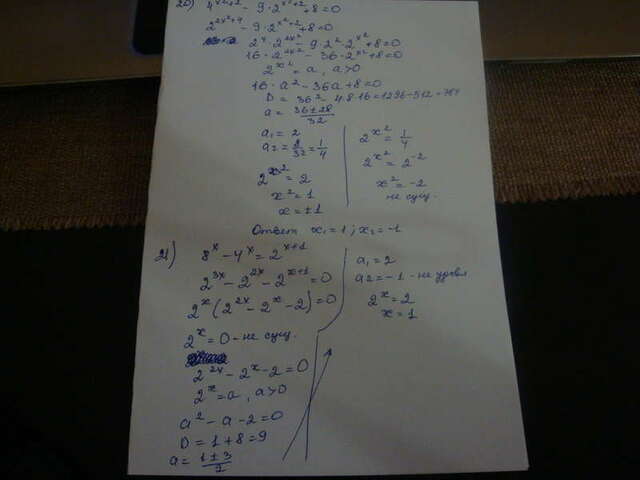 20) 4^{x²+2} - 9·2^{x²+2} + 8 = 0
2^{2x²+4} - 9·2^{x²+2} + 8 = 0
2⁴·2^{2x²} - 9·2²·2^{x²} + 8 = 0
16·2^{2x²} - 36·2^{x²} + 8 = 0
2^{x²} = a, a>0
16·a² - 36a + 8 = 0
D = 36² - 4·8·16 = 1296 - 512 = 784
a = (36±28)/32
a₁ = 2
a₂ = 8/32 = 1/4
2^{x²} = 2
x² = 1
x = ±1
2^{x²} = 1/4
2^{x²} = 2^{-2}
x² = -2
не сущ.
Ответ x₁=1; x₂=-1
21) 8^x - 4^x = 2^{x+1}
2^{3x} - 2^{2x} - 2^{x+1} = 0
2^x (2^{2x} - 2^x - 2) = 0
2^x = 0 - не сущ.
2^{2x} - 2^x - 2 = 0
2^x = a, a>0
a² - a - 2 = 0
D = 1 + 8 = 9
a = (1±3)/2
a₁ = 2
a₂ = -1 - не удовл
2^x = 2
x = 1